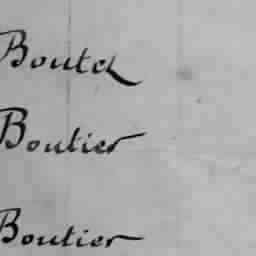 Boutet
Boutier
Boutier